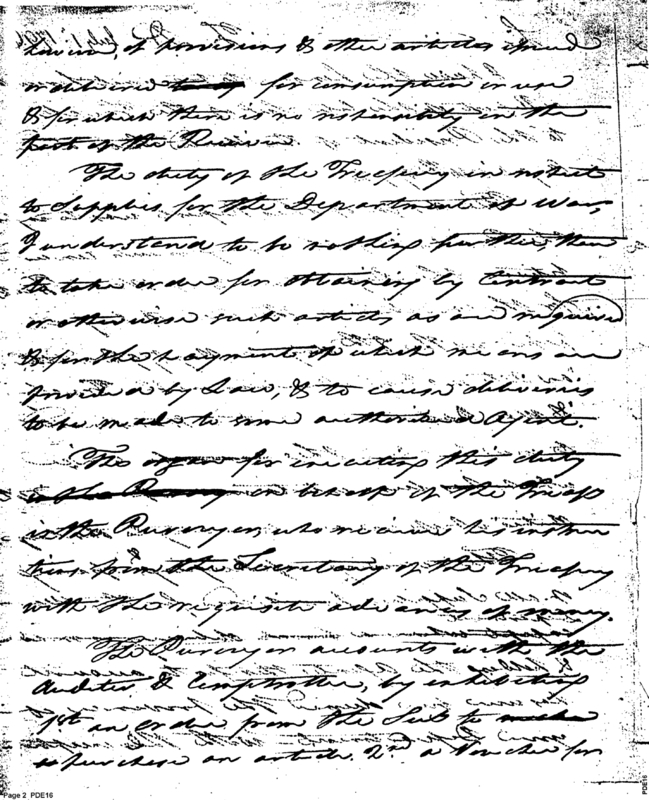 however, of provisions & other articles issued
or delivered for consumption or use
& for which there is no responsibility on the
part of the Receiver.
The duty of the Treasury in respect
to Supplies for the Department of War,
I understand to be nothing further, than
to take order for obtaining by Contract
or otherwise such articles as are required
& for the payment of which means are
provided by Law, & to cause deliveries
to be made to some authorised Agent.
The organ for executing this duty
on behalf of the Treasy
is the Purveyor, who receives his instruc
tions from the Secretary of the Treasury
with the requisite advances of money.
The Purveyor accounts with the
Auditor & Comptroller, by exhibiting
1st an order from the Sec to
purchase an article. 2nd a Voucher for
Page 2 PDE16
PDE16